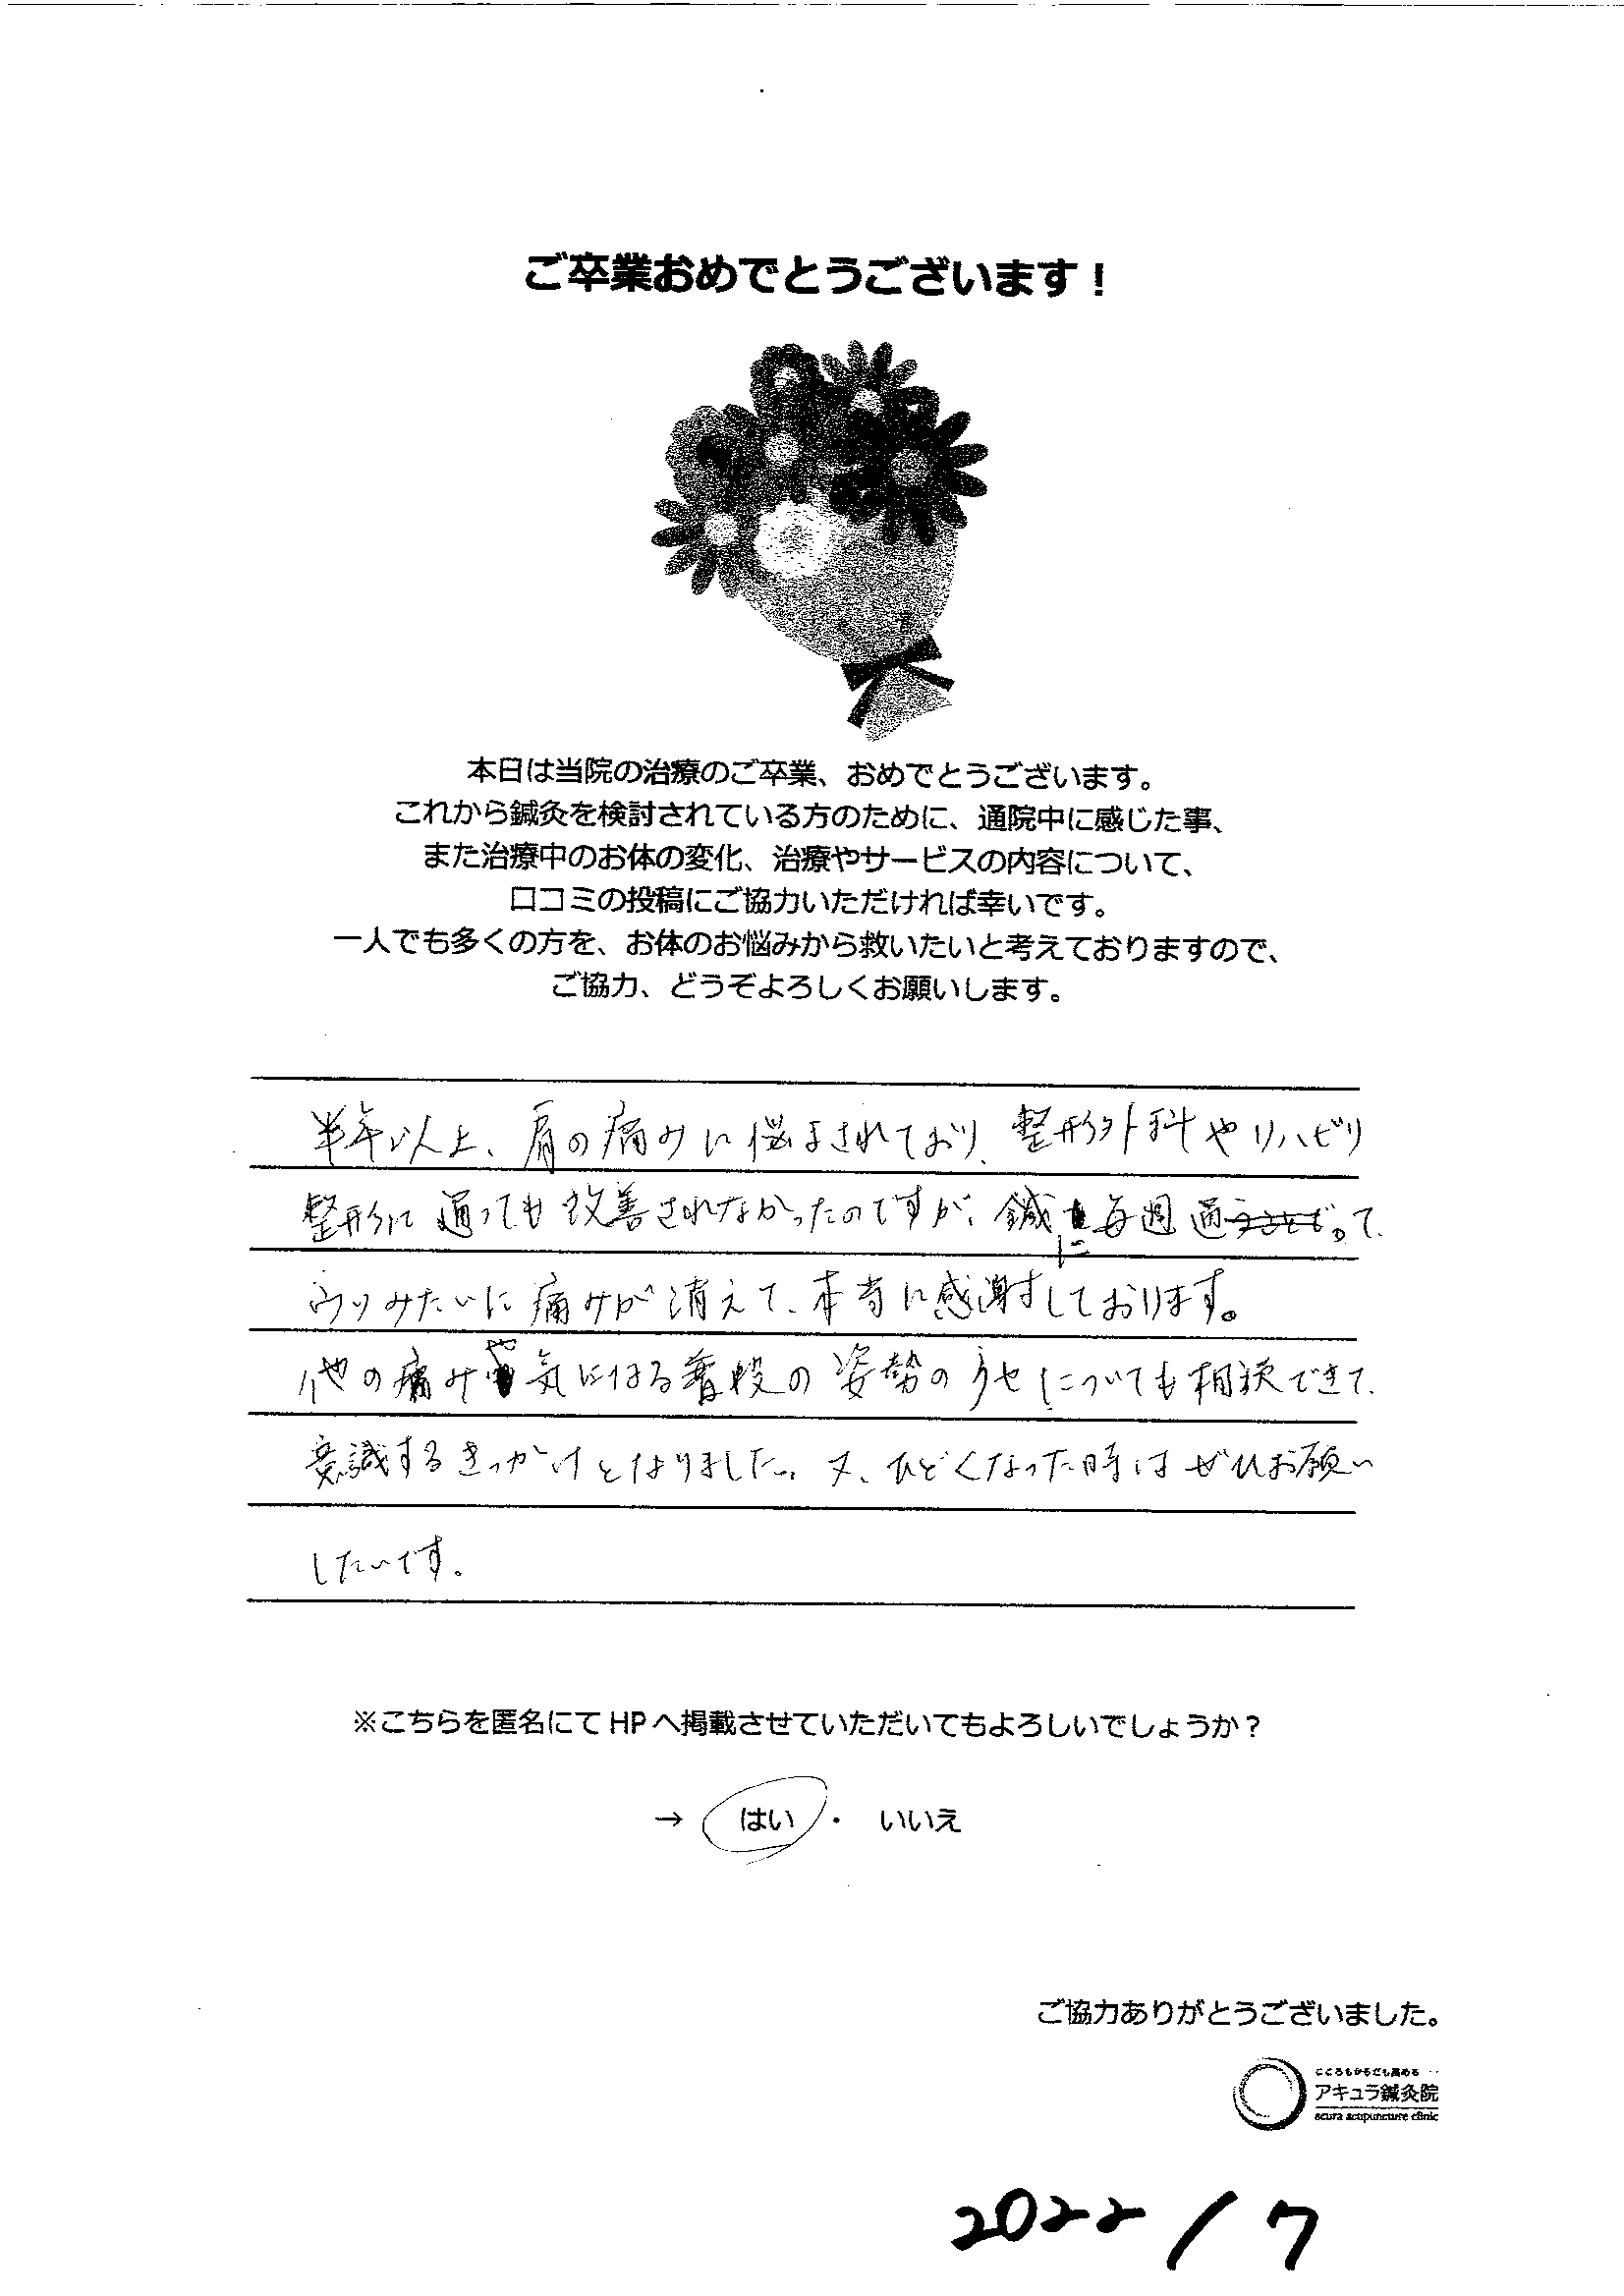 ご卒業おめでとうございます！
本日は当院の治療のご卒業、おめでとうございます。
これから鍼灸を検討されている方のために、通院中に感じた事、
また治療中のお体の変化、治療やサービスの内容について、
口コミの投稿にご協力いただければ幸いです。
一人でも多くの方を、お体のお悩みから救いたいと考えておりますので、
ご協力、どうぞよろしくお願いします。
半年以上、肩の痛みに悩まされており、整形外科やリハビリ
整形に通っても改善されなかったのですが、鍼に毎週通って、
ウソみたいに痛みが消えて、本当に感謝しております。
他の痛みや気になる普段の姿勢のクセについても相談できて、
意識するきっかけとなりました。又、ひどくなった時はぜひお願い
したいです。
※こちらを匿名にてHPへ掲載させていただいてもよろしいでしょうか？
→ はい ・ いいえ
ご協力ありがとうございました。
こころもからだも高める
アキュラ鍼灸院
acura acupuncture clinic
2022/7